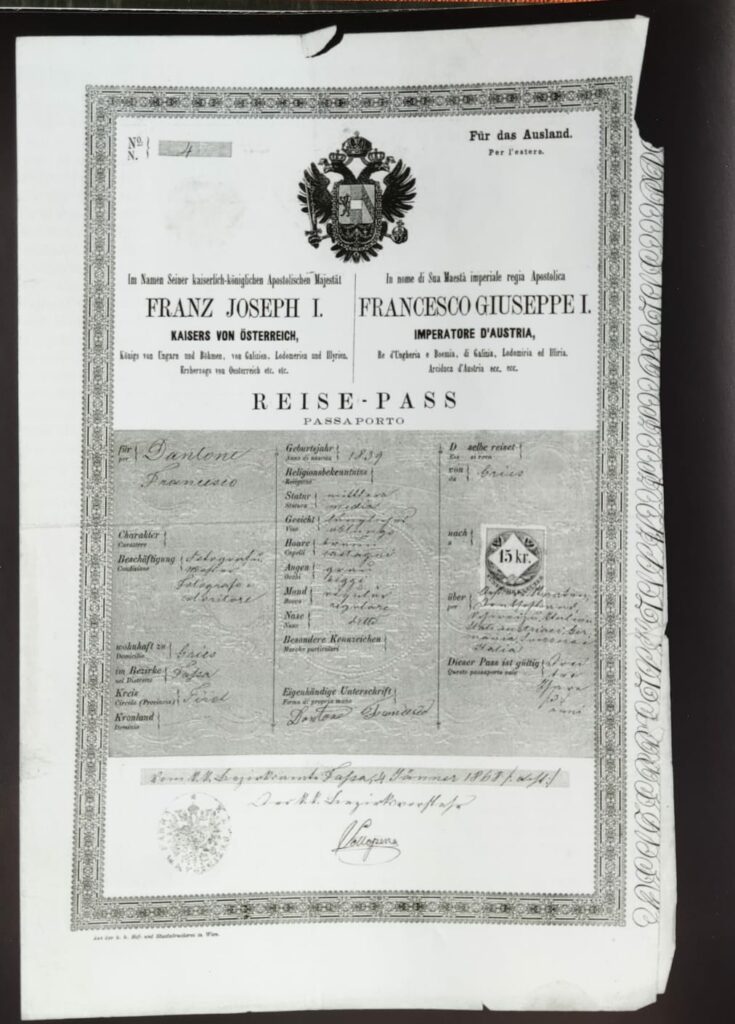 No
N.
4
Für das Ausland.
Per l'estero.
Im Namen Seiner kaiserlich-königlichen Apostolischen Majestät
FRANZ JOSEPH I.
KAISERS VON ÖSTERREICH,
Königs von Ungarn und Böhmen, von Galizien, Lodomerien und Illyrien,
Erzherzogs von Oesterreich etc. etc.
In nome di Sua Maestà imperiale regia Apostolica
FRANCESCO GIUSEPPE I.
IMPERATORE D'AUSTRIA,
Re d'Ungheria e Boemia, di Galizia, Lodomiria ed Illiria,
Arciduca d'Austria ecc. ecc.
REISE-PASS
PASSAPORTO
für
per
Dantone
Francesco
Charakter
Carattere
Beschäftigung
Condizione
Fotografo e
coloritore
wohnhaft zu
Domicilio
Gries
im Bezirke
nel Distretto
Fassa
Kreis
Circolo (Provincia)
Tirol
Kronland
Dominio
Geburtsjahr
Anno di nascita
1839
Religionsbekenntniss
Religione
Statur
Statura
mittlere
media
Gesicht
Viso
länglich
oblungo
Haare
Capelli
braun
castagni
Augen
Occhi
grau
Mund
Bocca
regulär
regolare
Nase
Naso
detto
Besondere Kennzeichen
Marche particolari
Eigenhändige Unterschrift
Firma di propria mano
Dantone Francesco
D selbe reiset
von
da
Gries
nach
a
15 kr.
über
per
Italia
Dieser Pass ist gültig
Questo passaporto vale
drei
tre
Jahre
anni
vom k.k. Bezirksamte Fassa, 4 Jänner 1868
Der k.k. Bezirksvorsteher
Aus der k. k. Hof- und Staatsdruckerei in Wien.